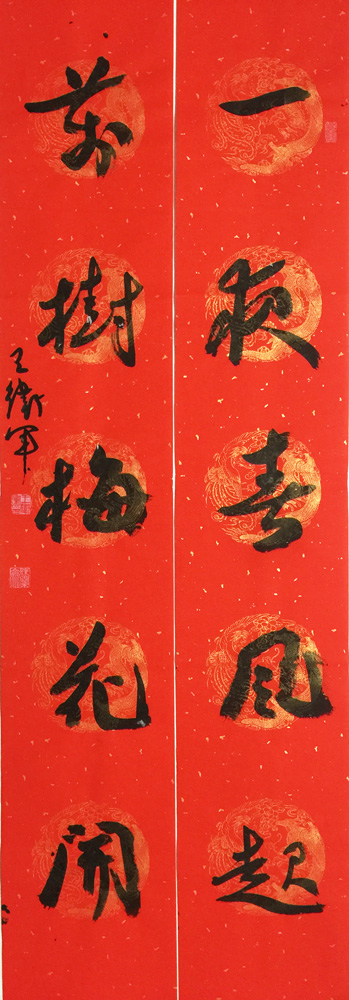 一夜春風起
萬樹梅花開
王衛軍